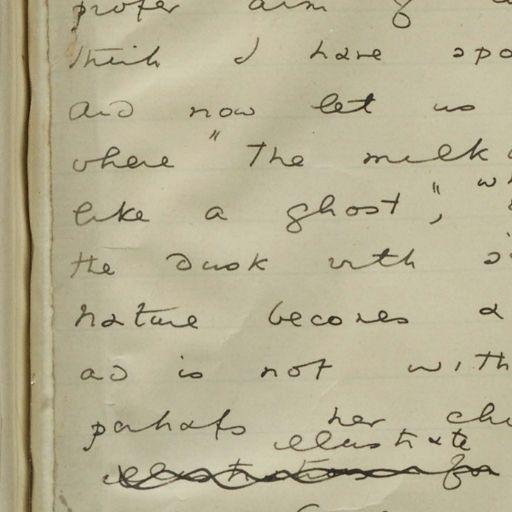 proper aim of
think I have spo
and now let us
where "the milk
like a ghost", wh
the dusk with s
nature becomes a
ad is not with
perhaps her chi
illustrate
illustrations for